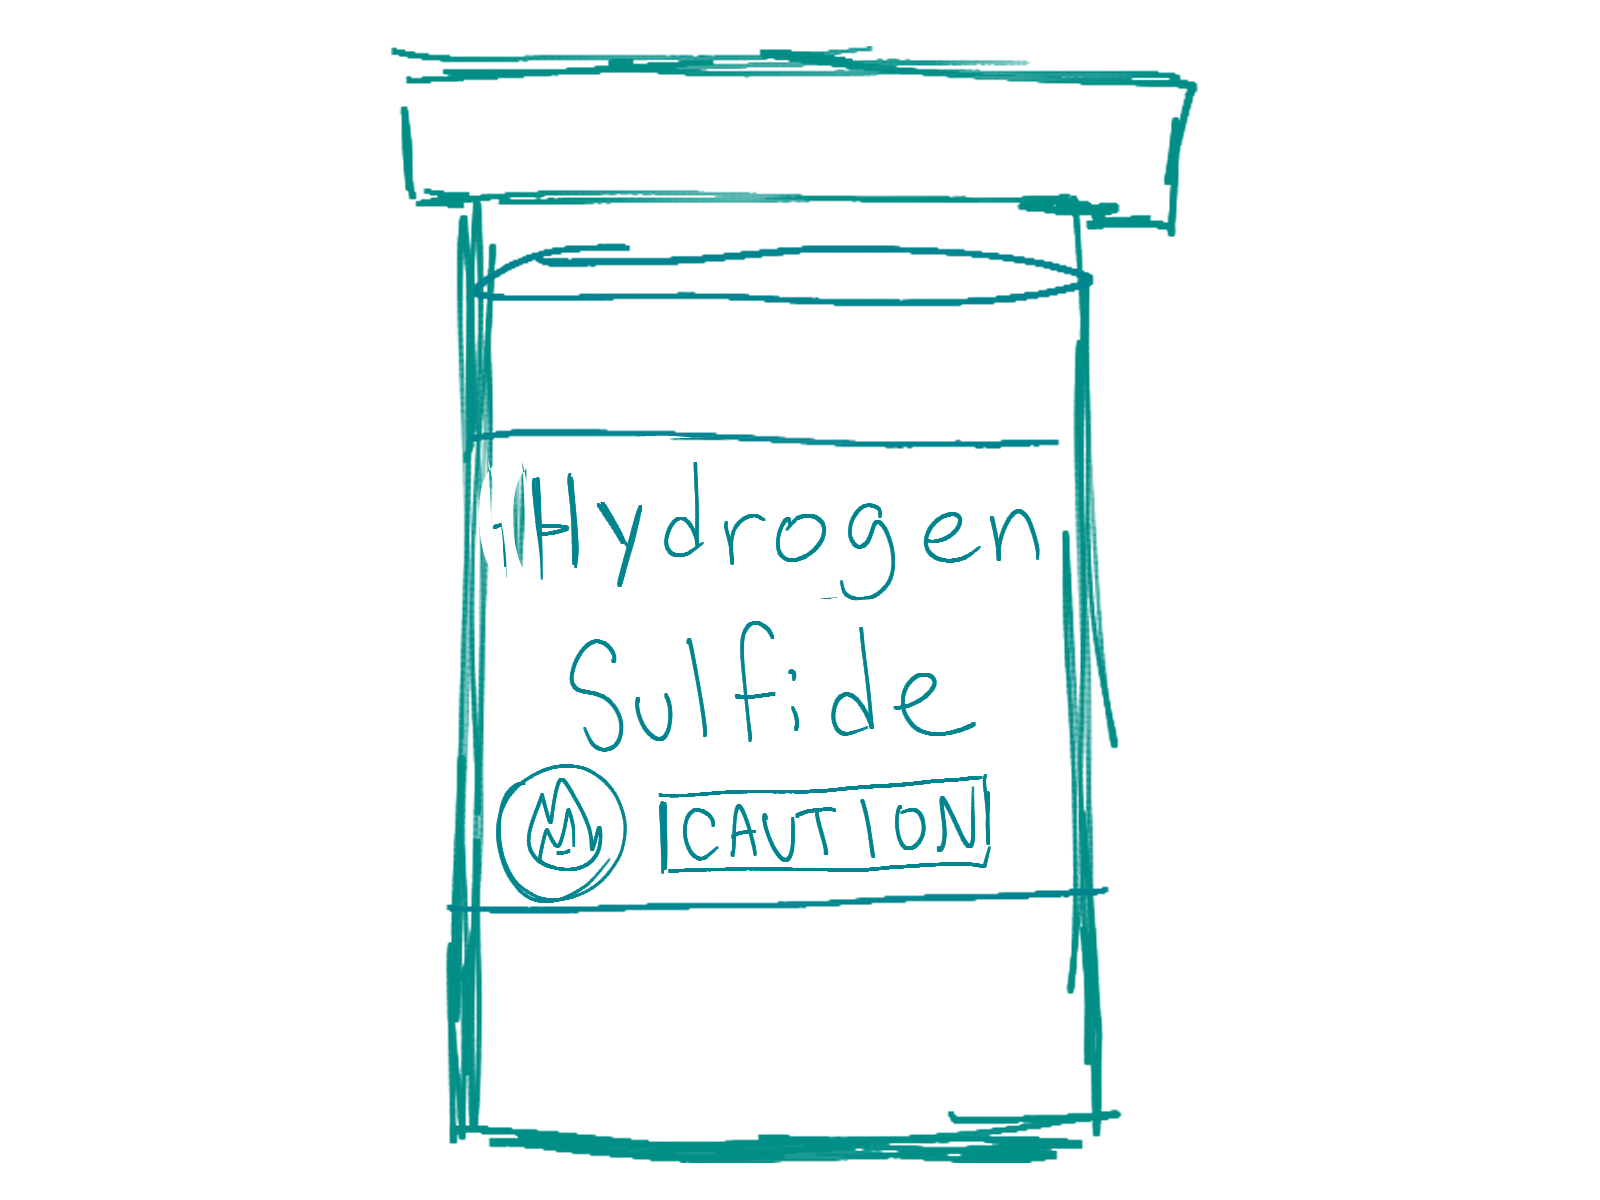 Hydrogen
Sulfide
CAUTION